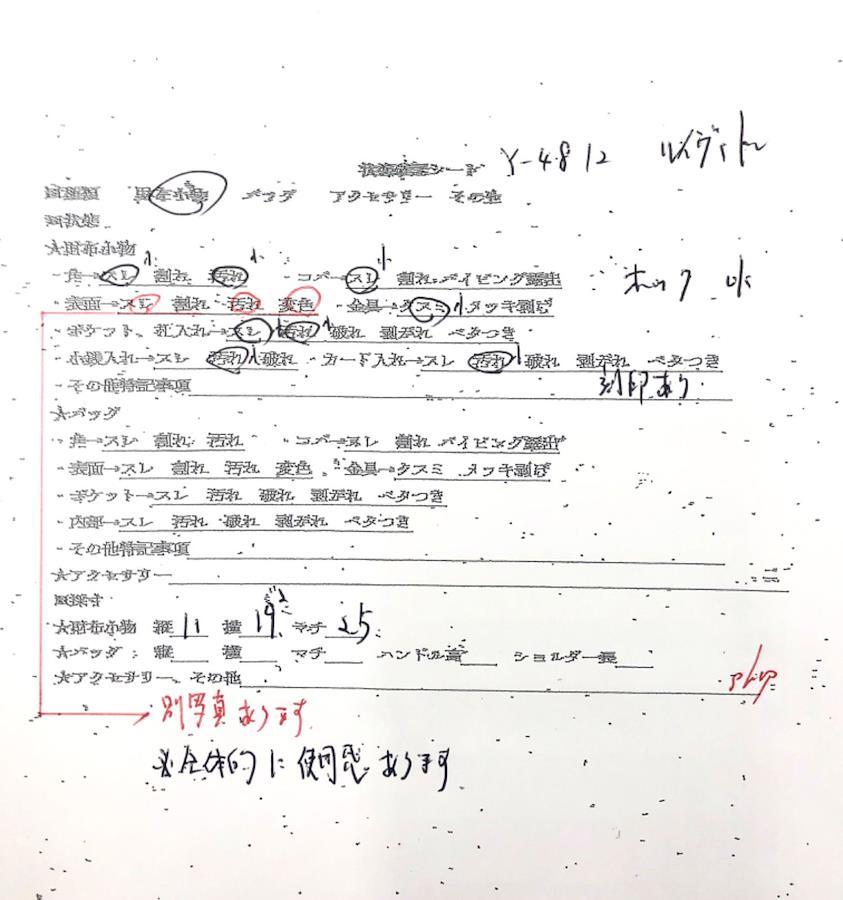 状態確認シート Y-4812 ルイヴィトン
財布小物 バッグ アクセサリー その他
★財布小物
・角→スレ小 割れ 汚れ小 ・コバ→スレ小 割れ パイピング露出 ホック 小
・表面→スレ 割れ 汚れ 変色 ・金具→クスミ小 メッキ剥げ
・ポケット、札入れ→スレ小 汚れ小 破れ 剥がれ ベタつき
・小銭入れ→スレ 汚れ小 破れ ・カード入れ→スレ 汚れ小 破れ 剥がれ ベタつき
・その他特記事項 刻印あり
★バッグ
・角→スレ 割れ 汚れ ・コバ→スレ 割れ パイピング露出
・表面→スレ 割れ 汚れ 変色 ・金具→クスミ メッキ剥げ
・ポケット→スレ 汚れ 破れ 剥がれ ベタつき
・内部→スレ 汚れ 破れ 剥がれ ベタつき
・その他特記事項
★アクセサリー
採寸
★財布小物 縦 11 横 19 マチ 2.5
★バッグ: 縦 横 マチ ハンドル高 ショルダー長
★アクセサリー、その他
別写真あります
※全体的に使用感あります